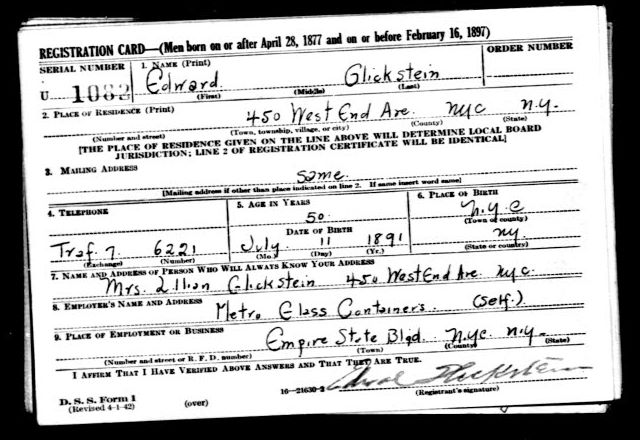 REGISTRATION CARD—(Men born on or after April 28, 1877 and on or before February 16, 1897)
SERIAL NUMBER 1. NAME (Print) ORDER NUMBER
U 1082 Edward Glickstein
(First) (Middle) (Last)
2. PLACE OF RESIDENCE (Print)
450 West End Ave. NYC N.Y.
(Number and street) (Town, township, village, or city) (County) (State)
[THE PLACE OF RESIDENCE GIVEN ON THE LINE ABOVE WILL DETERMINE LOCAL BOARD
JURISDICTION; LINE 2 OF REGISTRATION CERTIFICATE WILL BE IDENTICAL]
3. MAILING ADDRESS
Same
[Mailing address if other than place indicated on line 2. If same insert word same]
4. TELEPHONE 5. AGE IN YEARS 6. PLACE OF BIRTH
50 N.Y.C
DATE OF BIRTH (Town or county)
Traf. 7. 6221 July 11 1891 NY.
(Exchange) (Number) (Mo.) (Day) (Yr.) (State or country)
7. NAME AND ADDRESS OF PERSON WHO WILL ALWAYS KNOW YOUR ADDRESS
Mrs. Lillian Glickstein 450 West End Ave. NYC.
8. EMPLOYER'S NAME AND ADDRESS
Metro Glass Containers. (Self.)
9. PLACE OF EMPLOYMENT OR BUSINESS
Empire State Bldg. N.Y.C. N.Y.
(Number and street or R. F. D. number) (Town) (County) (State)
I AFFIRM THAT I HAVE VERIFIED ABOVE ANSWERS AND THAT THEY ARE TRUE.
D. S. S. Form 1
(Revised 4-1-42) (over) 16—21630-2 Edward Glickstein
(Registrant's signature)